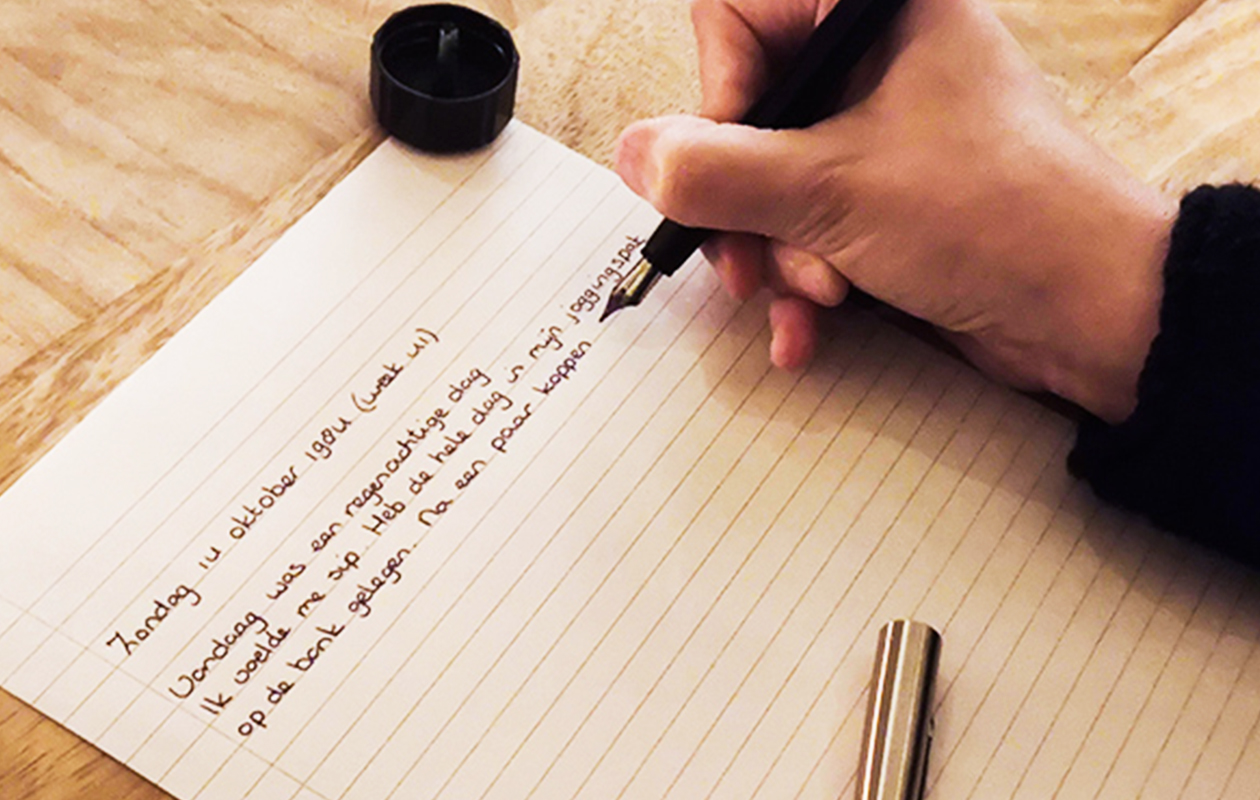 Zondag 14 oktober 1984 (week 41)
Vandaag was een regenachtige dag
Ik voelde me sip. Heb de hele dag in mijn joggingspak
op de bank gelegen. Na een paar koppen